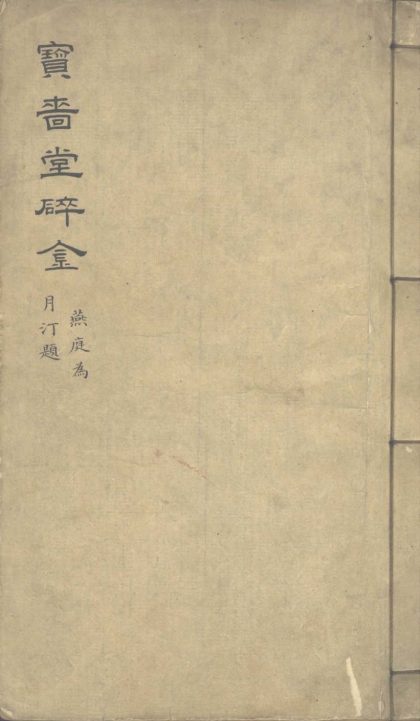 寶嗇堂碎金
燕庭為
月汀題